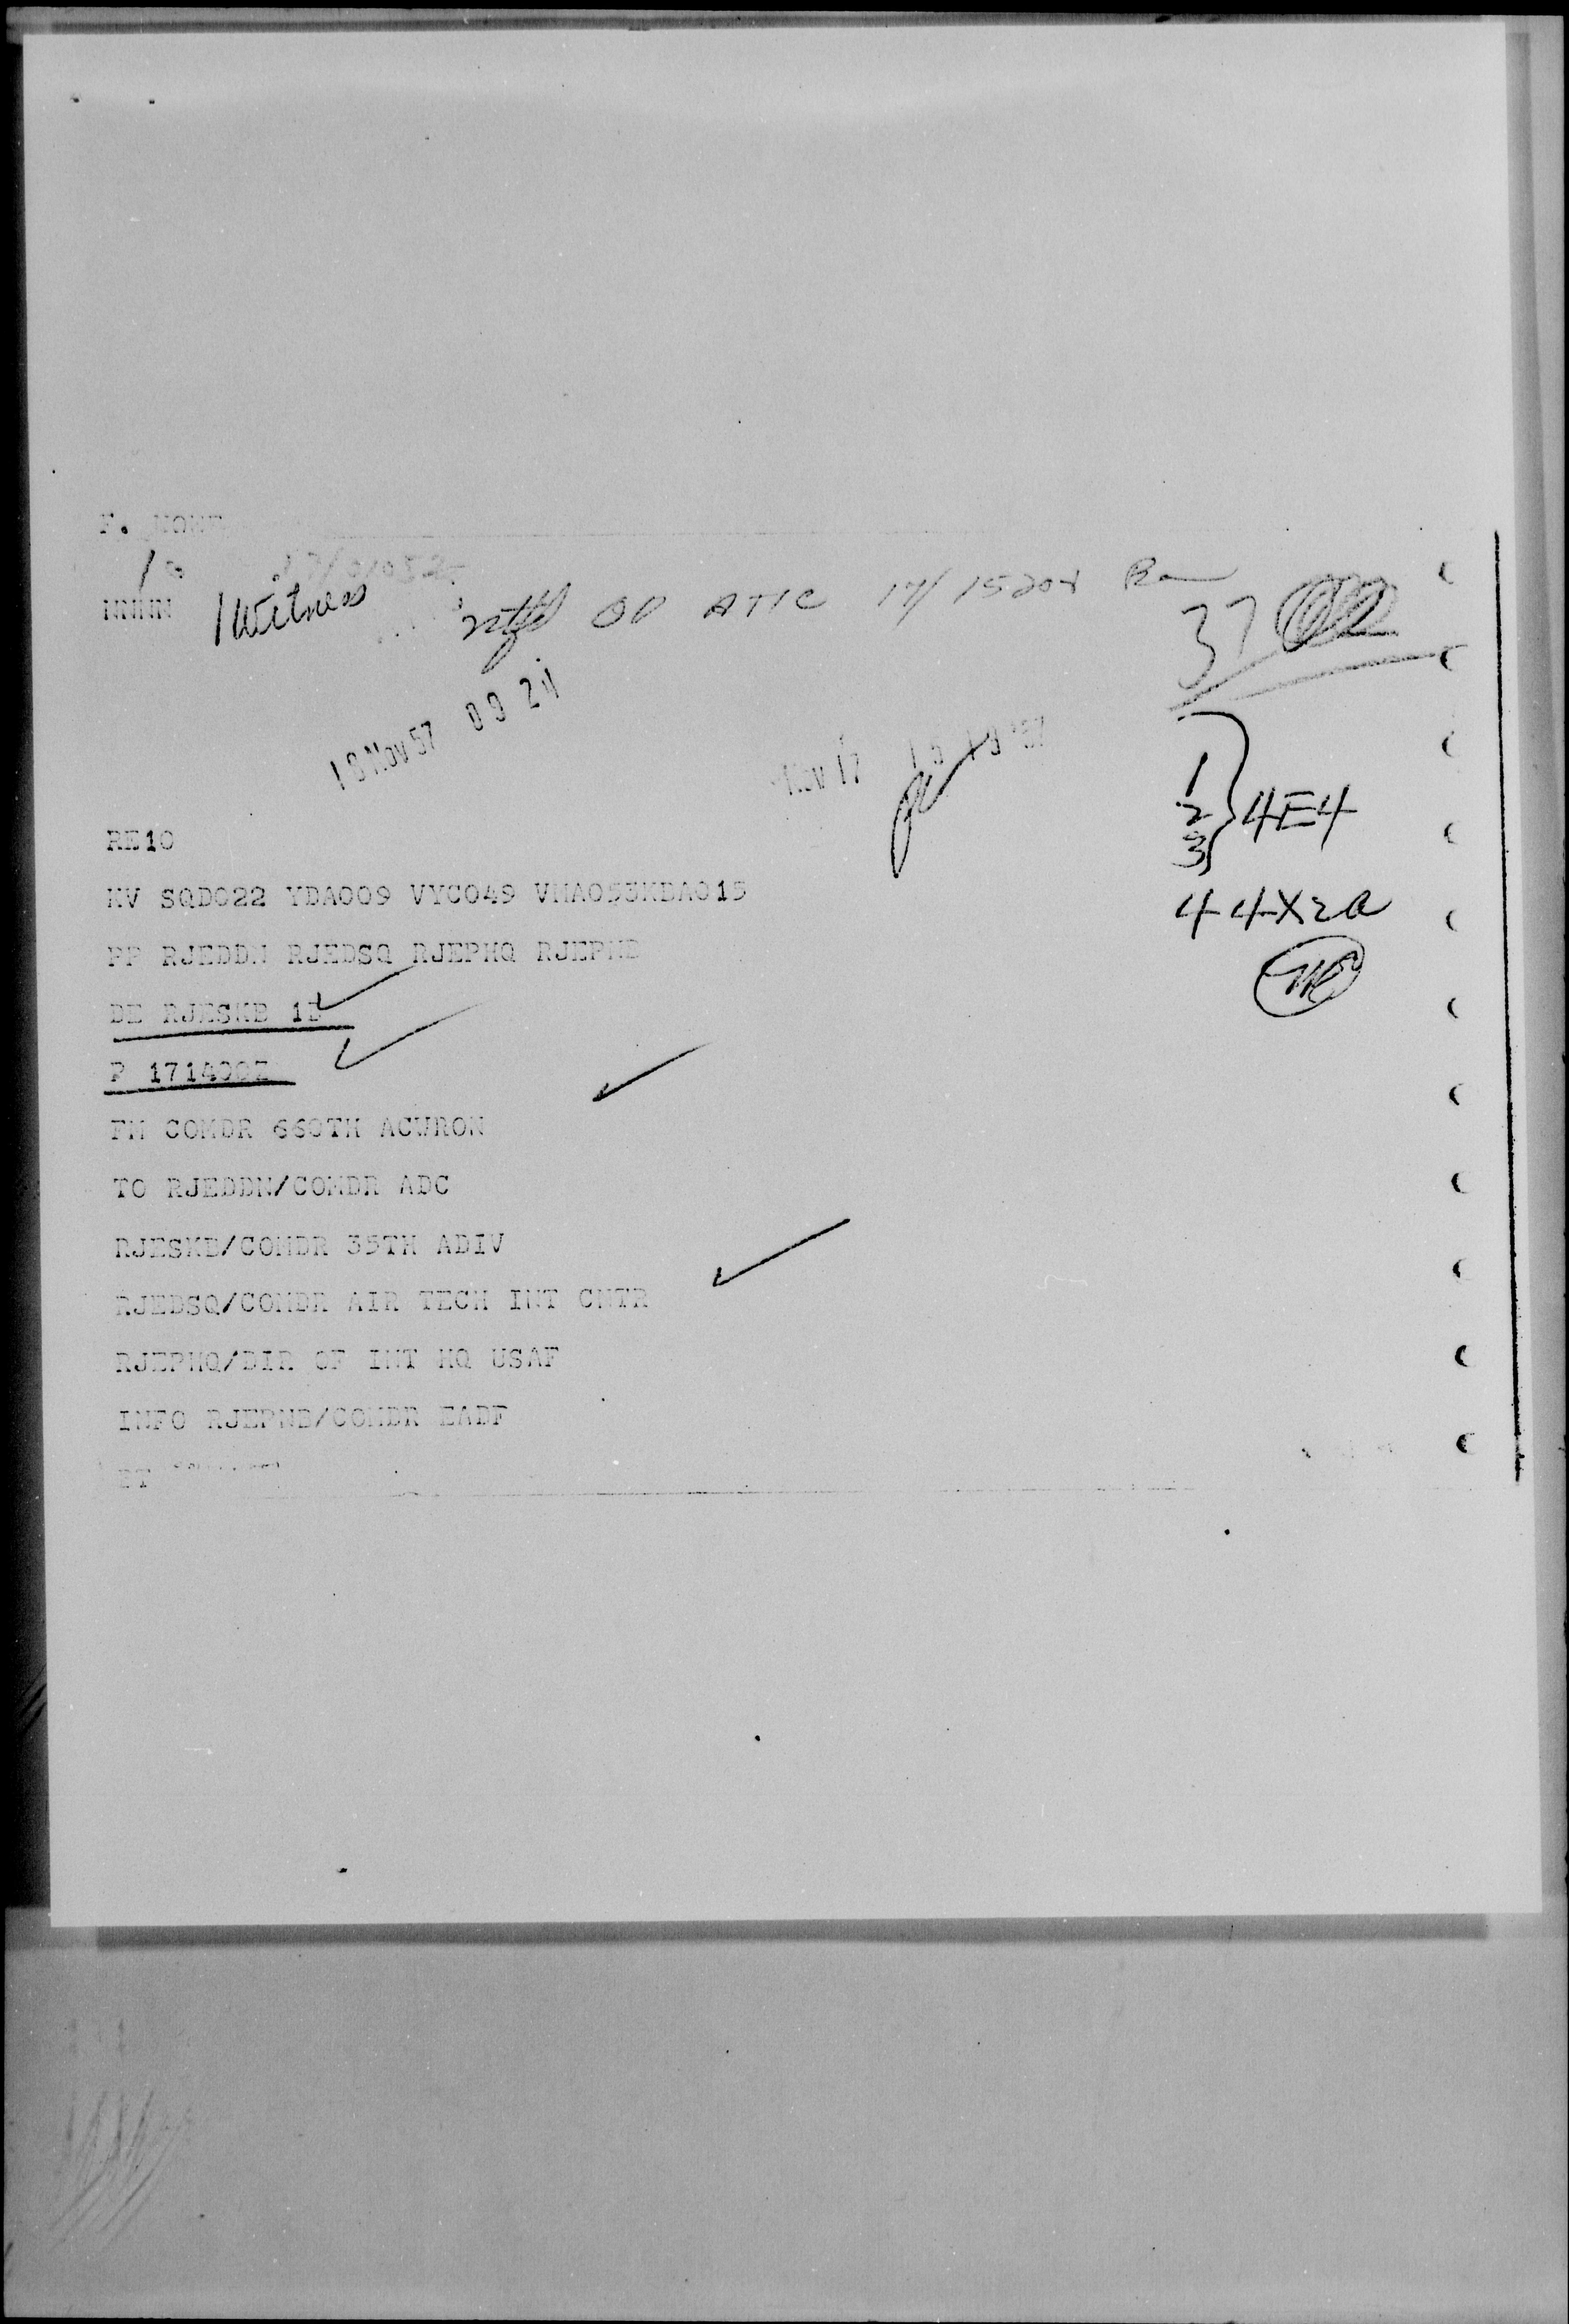 F. NONE
NNNN 1 Witness ntfd OD ATIC 17/1520Z
37
18 Nov 57 09 24
Nov 17
1
2 } 4E4
3
RE10
KV SQD022 YDA009 VYC049 VMA053KDA015
PP RJEDDN RJEDSQ RJEPHQ RJEPNB
4 4X2a
DE RJESKB 1D
P 171400Z
FM COMDR 660TH ACWRON
TO RJEDDN/COMDR ADC
RJESKB/COMDR 35TH ADIV
RJEDSQ/COMDR AIR TECH INT CNTR
RJEPHQ/DIR OF INT HQ USAF
INFO RJEPNB/COMDR EADF
BT